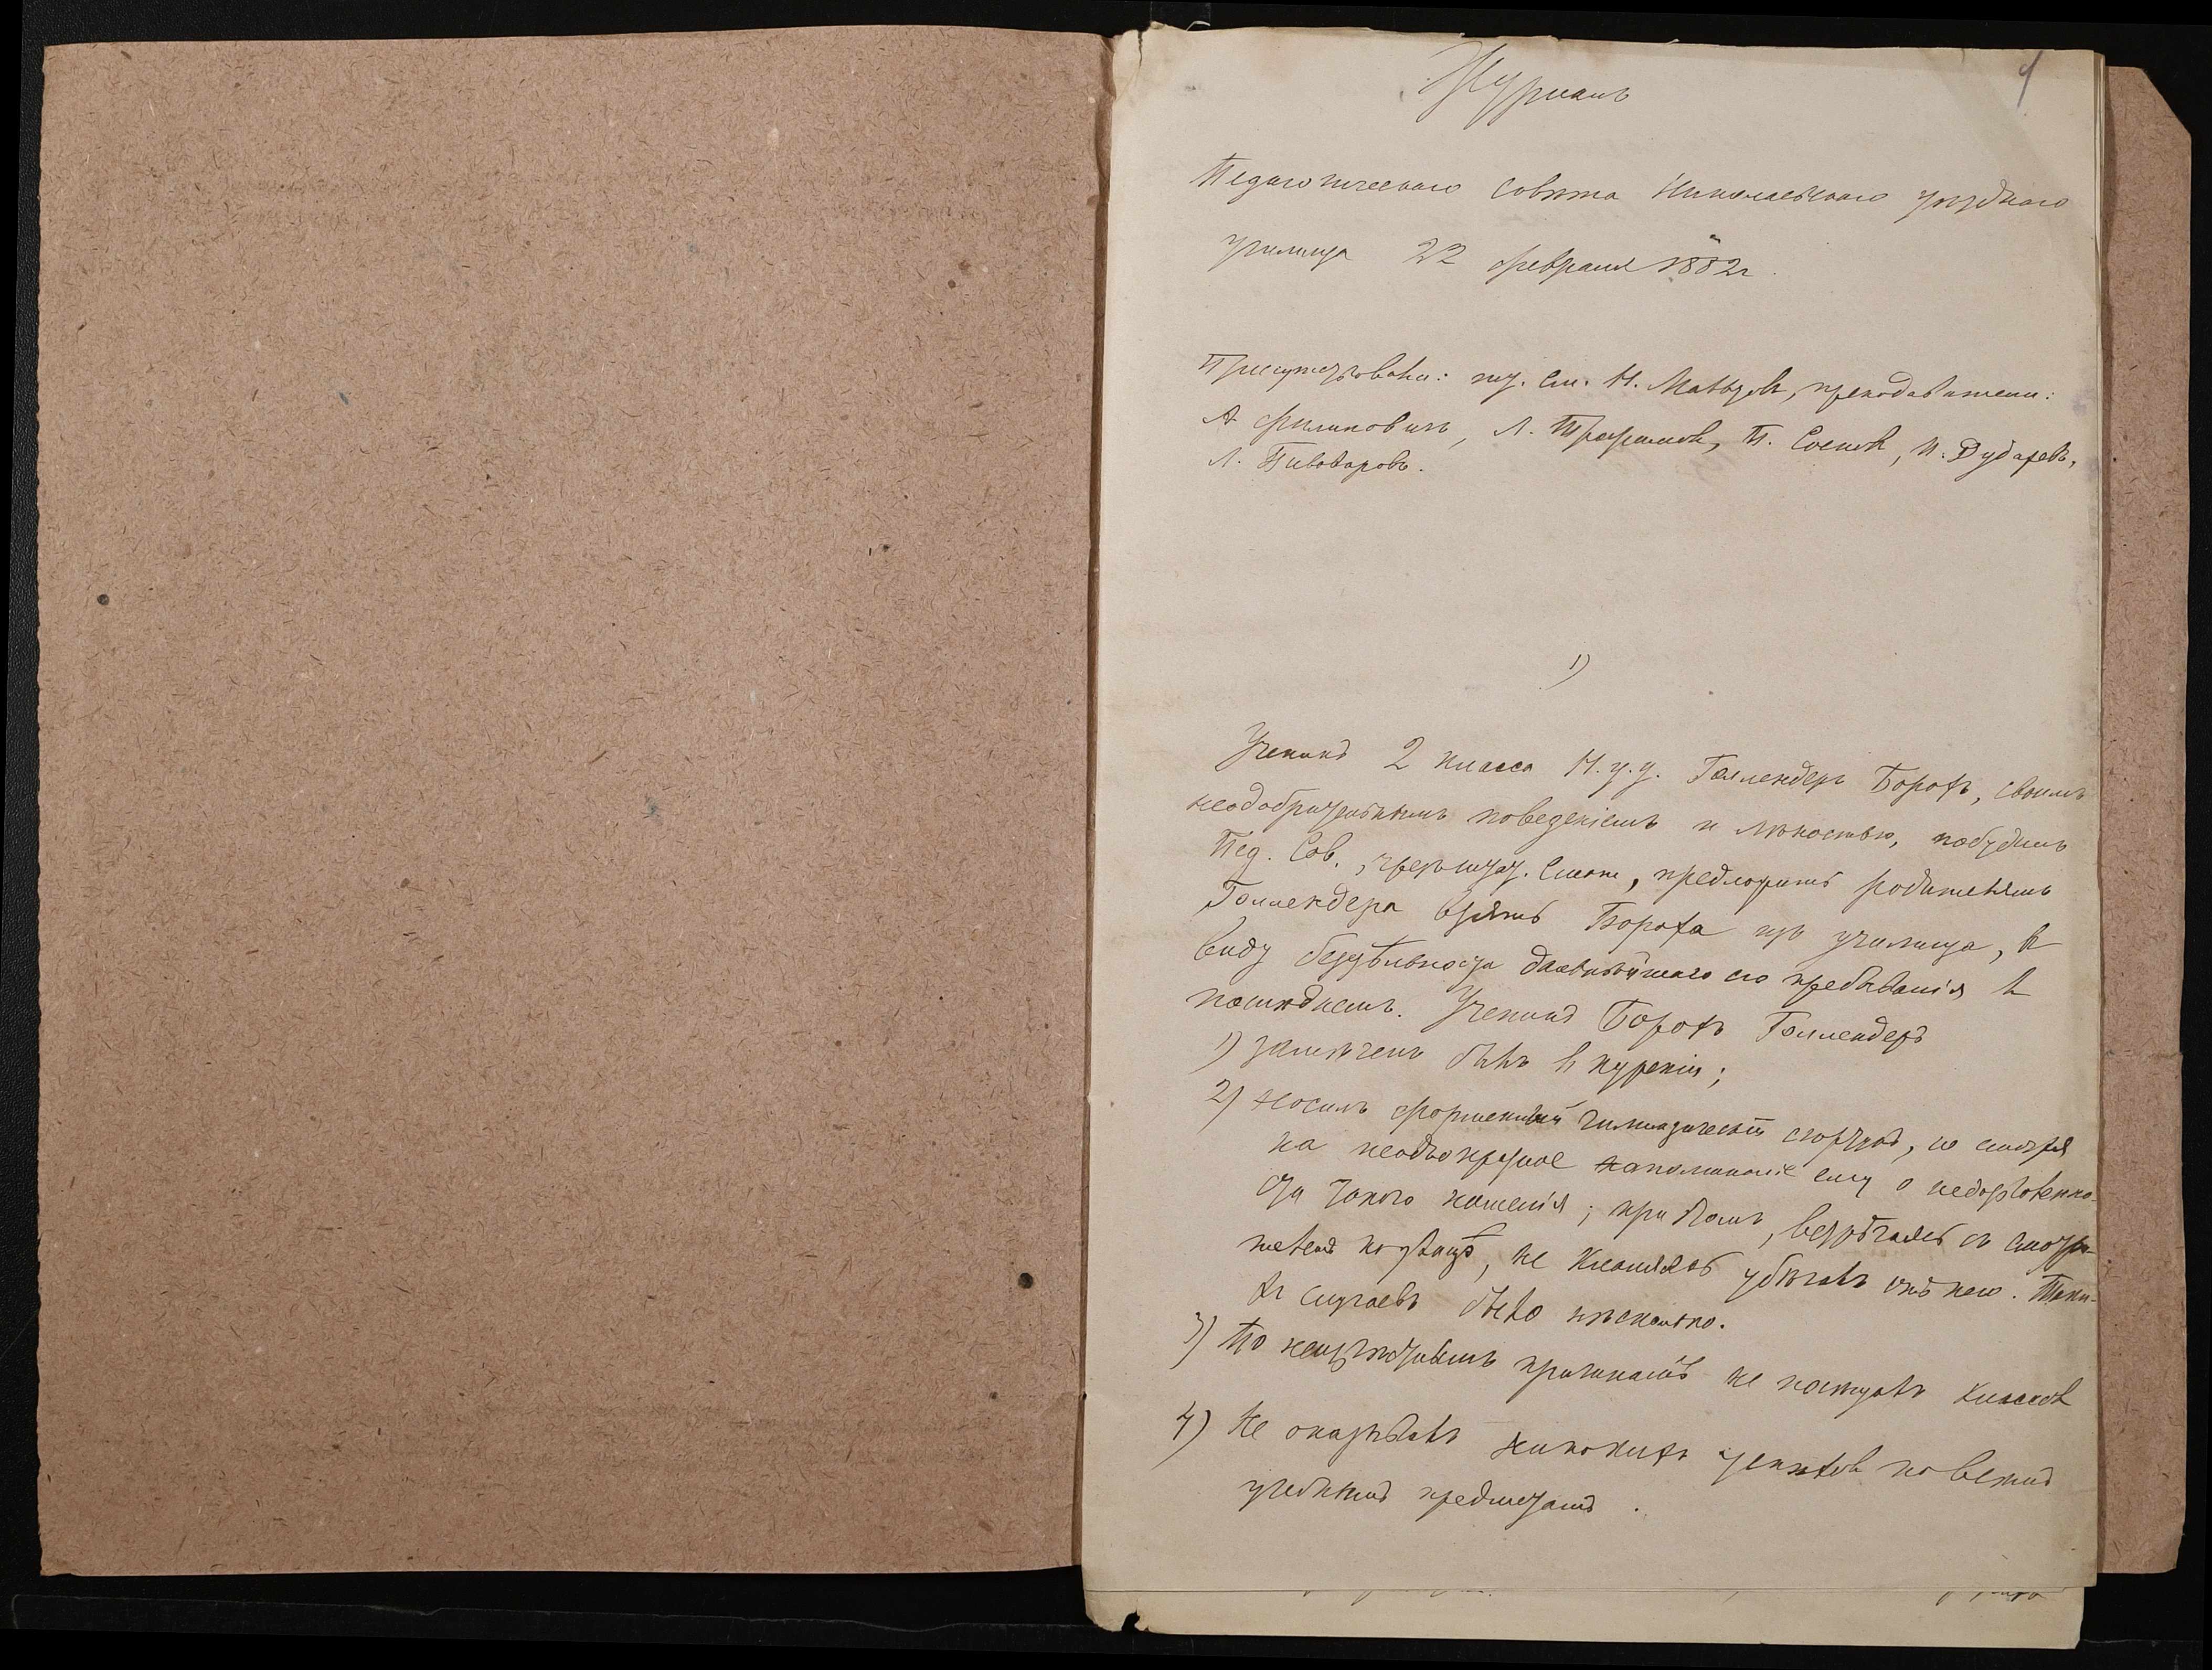 1
Журналъ
Педагогическаго Совѣта Николаевскаго уѣзднаго
училища 22 февраля 1882 г.
Присутствовали: шт. См. Н. Матвѣевъ, преподаватели:
А Филиповичъ, Л. Трофимовъ, П. Сосновъ, И. Дударевъ,
Л. Пивоваровъ.
1)
Ученикъ 2 класса Н. у. у. Голлендеръ Борохъ, своимъ
неодобрительнымъ поведеніемъ и лѣностью, побудилъ
Пед. Сов., чрезъ шт. Смот., предложить родителямъ
Голлендера взять Бороха изъ училища, въ
виду безцѣльности дальнѣйшаго его пребыванія въ
послѣднемъ. Ученикъ Борохъ Голлендеръ
1) замѣченъ былъ въ куреніи;
2) Носилъ форменный гимназическій сюртукъ, не смотря
на неоднократное напоминаніе ему о недозволенно-
сти такого ношенія; при томъ, встрѣчаясь съ смотри-
телемъ на улицѣ, не кланялся убѣгалъ отъ него. Таки-
хъ случаевъ было нѣсколько.
3) По неизвѣстнымъ причинамъ не посѣщалъ классовъ
4) Не оказывалъ никакихъ успѣховъ по всѣмъ
учебнымъ предметамъ.